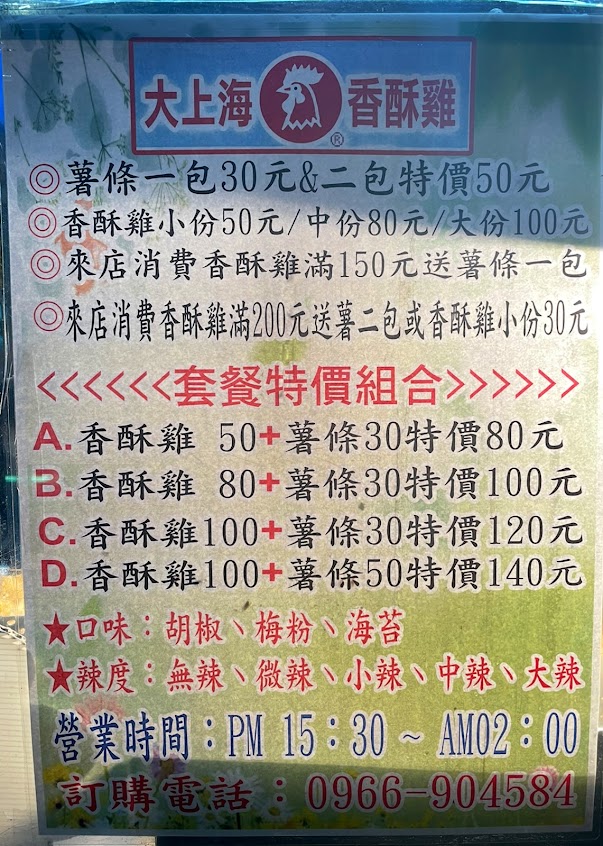 大上海 香酥雞
®
◎薯條一包30元&二包特價50元
◎香酥雞小份50元/中份80元/大份100元
◎來店消費香酥雞滿150元送薯條一包
◎來店消費香酥雞滿200元送薯二包或香酥雞小份30元
<<<<<<套餐特價組合>>>>>>
A.香酥雞 50+薯條30特價80元
B.香酥雞 80+薯條30特價100元
C.香酥雞100+薯條30特價120元
D.香酥雞100+薯條50特價140元
★口味：胡椒、梅粉、海苔
★辣度：無辣、微辣、小辣、中辣、大辣
營業時間：PM 15：30 ~ AM02：00
訂購電話：0966-904584